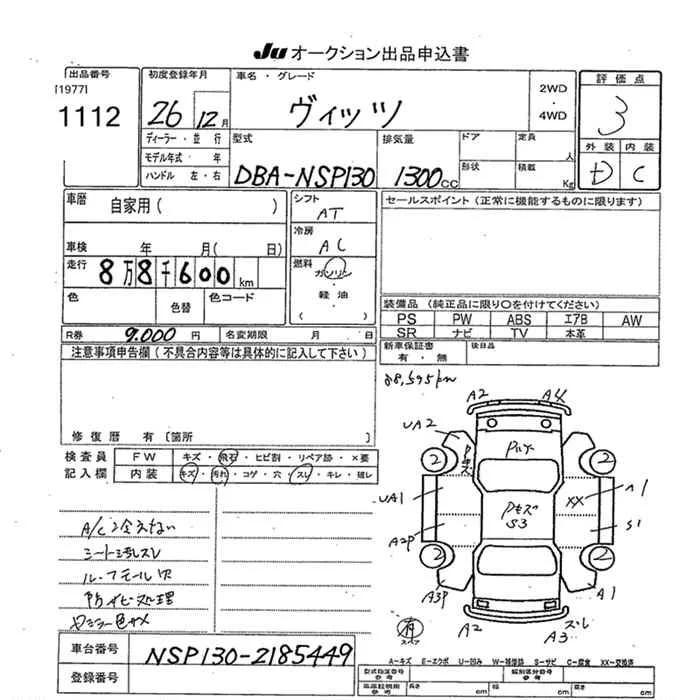 Ju オークション出品申込書
出品番号 初度登録年月 車名・グレード 2WD ・ 4WD 評価点
[1977]
1112 26 12月 ヴィッツ 3
ディーラー・並行 型式 排気量 ドア 定員 人 外装 内装
モデル年式 ・ 年
ハンドル 左・右 DBA-NSP130 1300cc 形状 積載 Kg D C
車暦 自家用( ) シフト AT セールスポイント(正常に機能するものに限ります)
冷房 AC
車検 年 月( 日)
走行 8万8千600km 燃料 ガソリン・軽油・( )
色 色替 色コード
装備品(純正品に限り〇を付けてください)
PS PW ABS エアB AW
SR ナビ TV 本革
R券 9,000円 名変期限 月 日 新車保証書 有・無 後日品
注意事項申告欄(不具合内容等は具体的に記入して下さい)
88,595km
修復歴 有[箇所 ]
検査員 FW キズ・飛石・ヒビ割・リペア跡・×要
記入欄 内装 キズ・汚れ・コゲ・穴・スレ・キレ・破レ
A2 A4
UA2
2 2
UA1 XX A1
S3 S1
A2P
2 2
A3P A1
A2 A3 スレ
有 スペア
A/C冷えない
シート汚れスレ
ルーフモール穴
防サビ処理
A-キズ E-エクボ U-凹み W-補修跡 S-サビ C-腐食 XX-交換済
車台番号 NSP130-2185449
型式指定番号 参考 類別区分番号 参考
登録番号
車庫証明用 参考 長さ cm 幅 cm 高さ cm